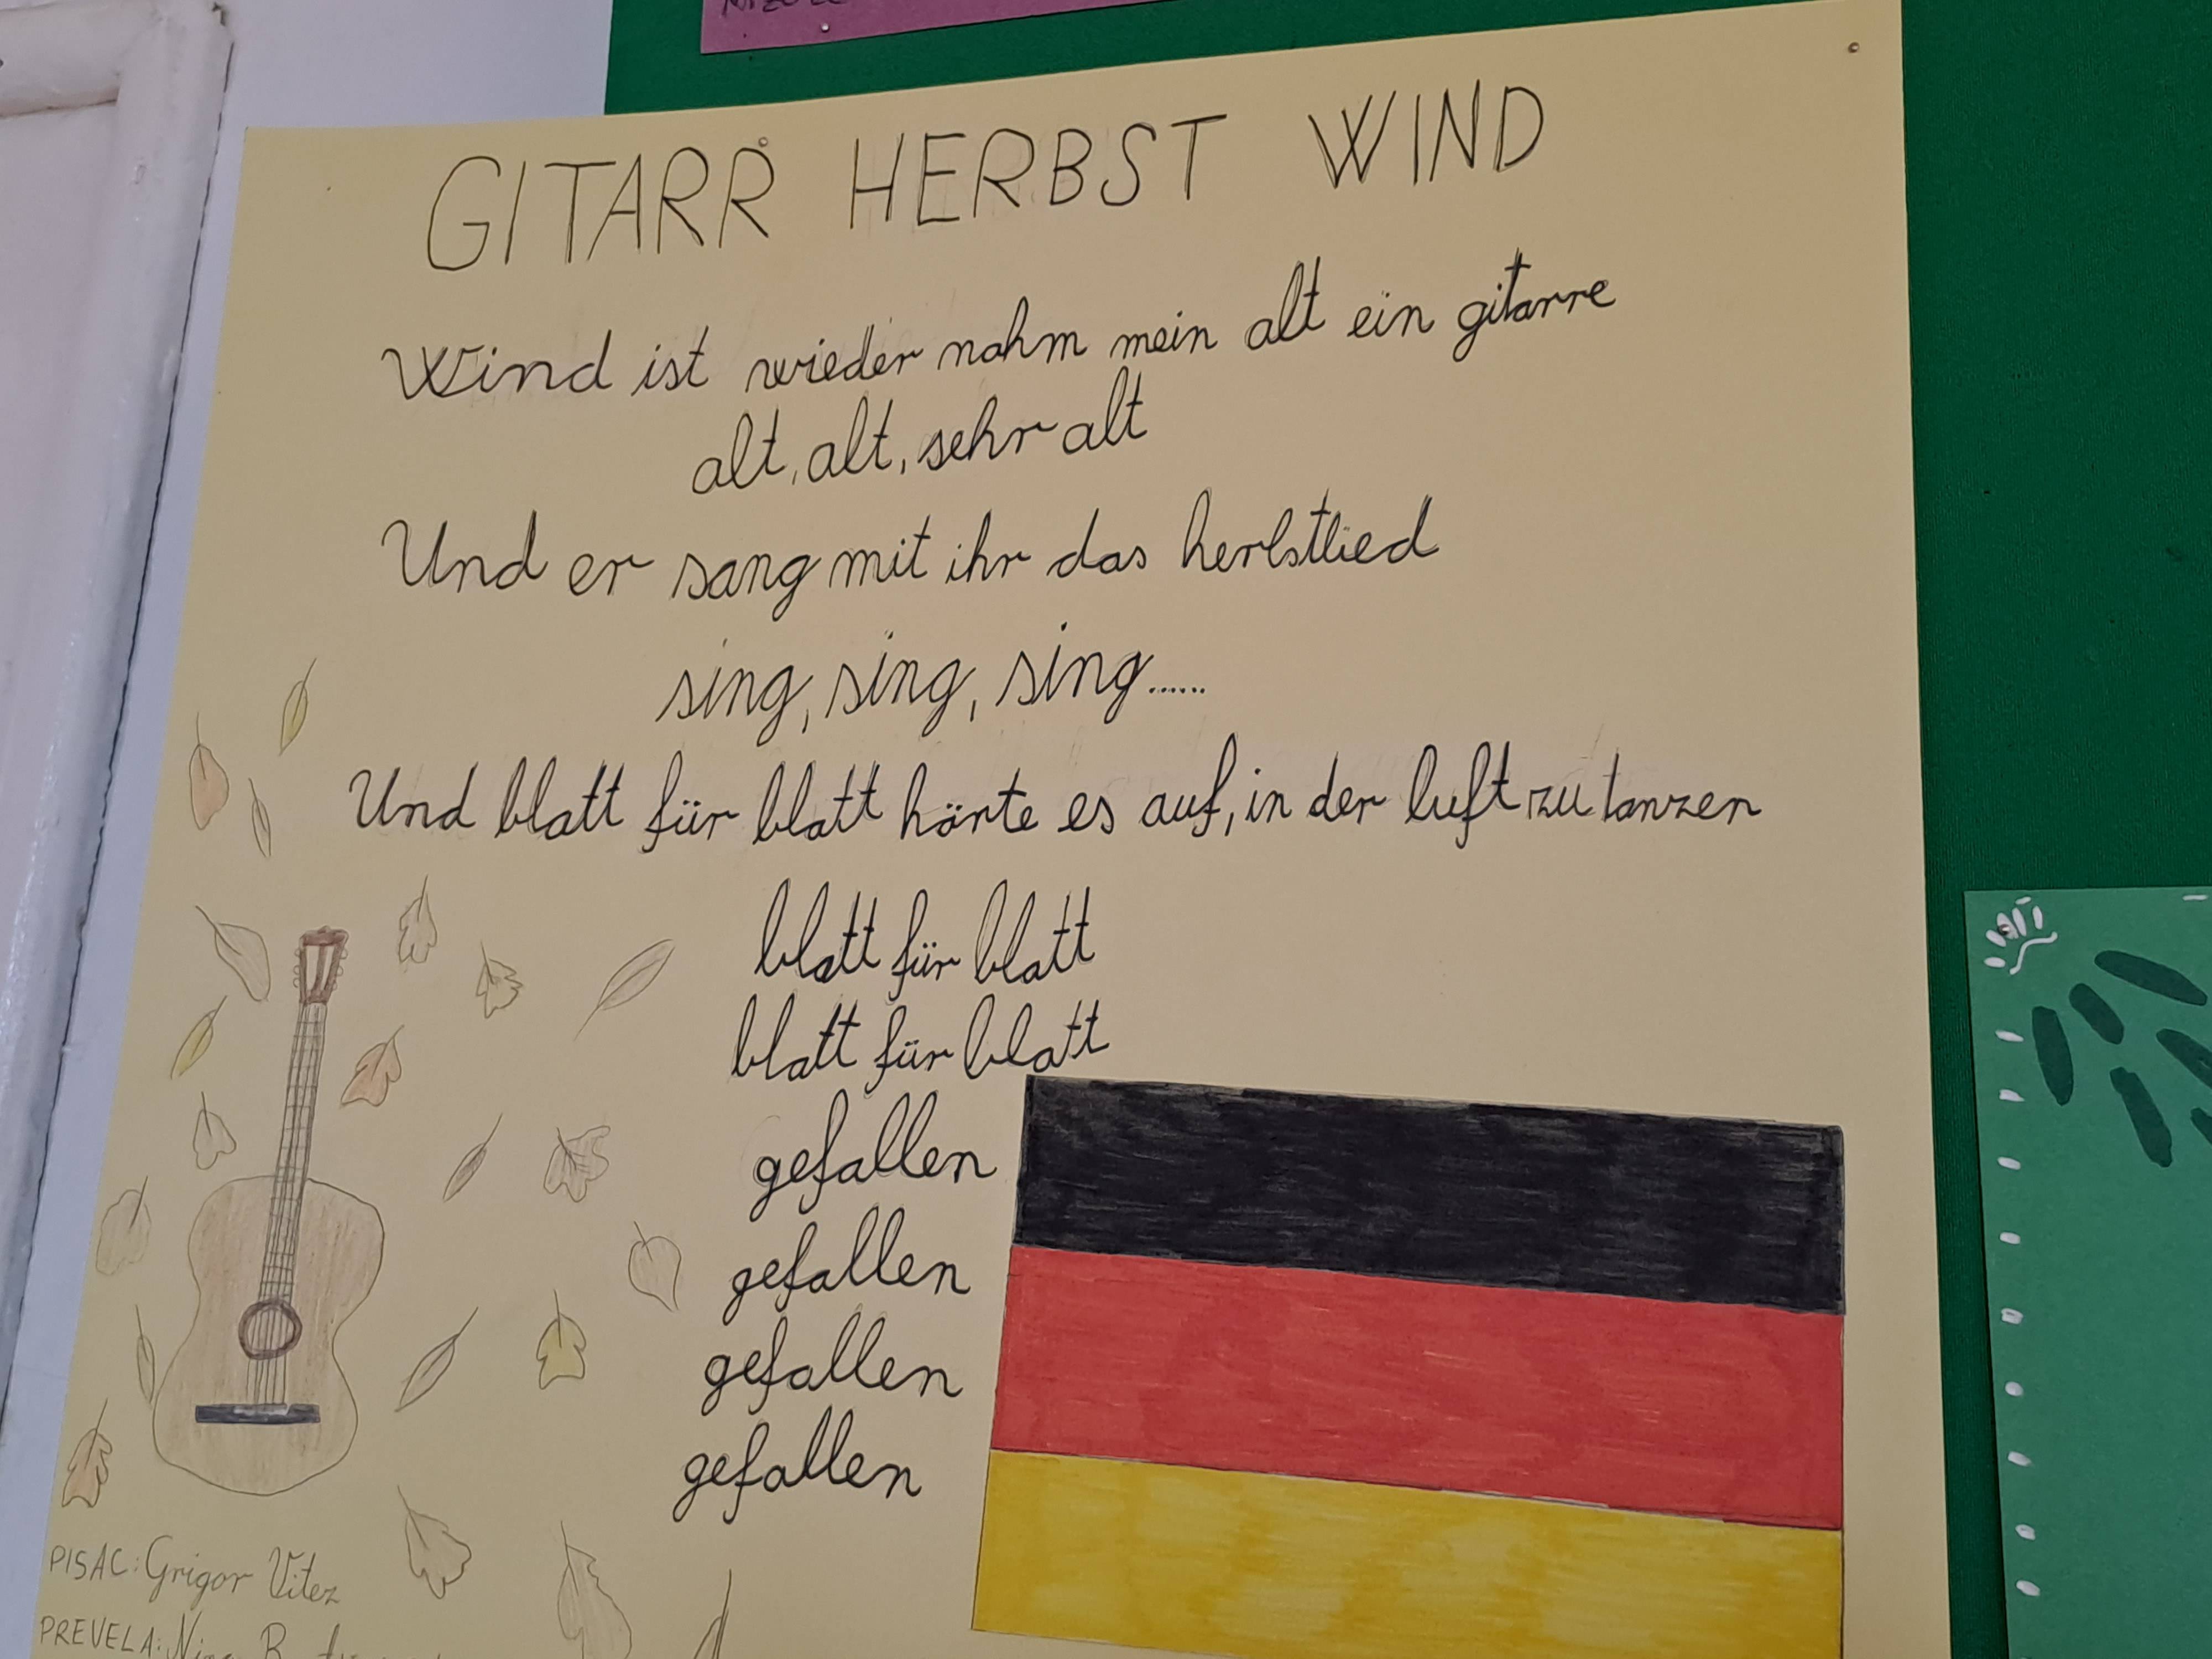 GITARR HERBST WIND
Wind ist wieder nahm mein alt ein gitarre
alt, alt, sehr alt
Und er sang mit ihr das herbstlied
sing, sing, sing......
Und blatt für blatt hörte es auf, in der luft zu tanzen
blatt für blatt
blatt für blatt
gefallen
gefallen
gefallen
gefallen
PISAC: Grigor Vitez
PREVELA: Nina